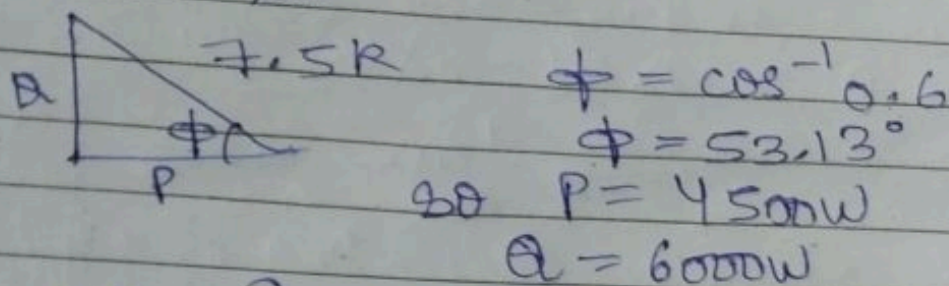 Q 7.5K ϕ = cos⁻¹ 0.6
ϕ ϕ = 53.13°
P so P = 4500W
Q = 6000W